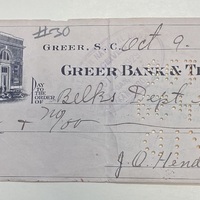 #30
GREER, S. C. Oct 9.
GREER BANK & T
PAY TO THE ORDER OF Belks Dept.
no/00
J. O. Hend